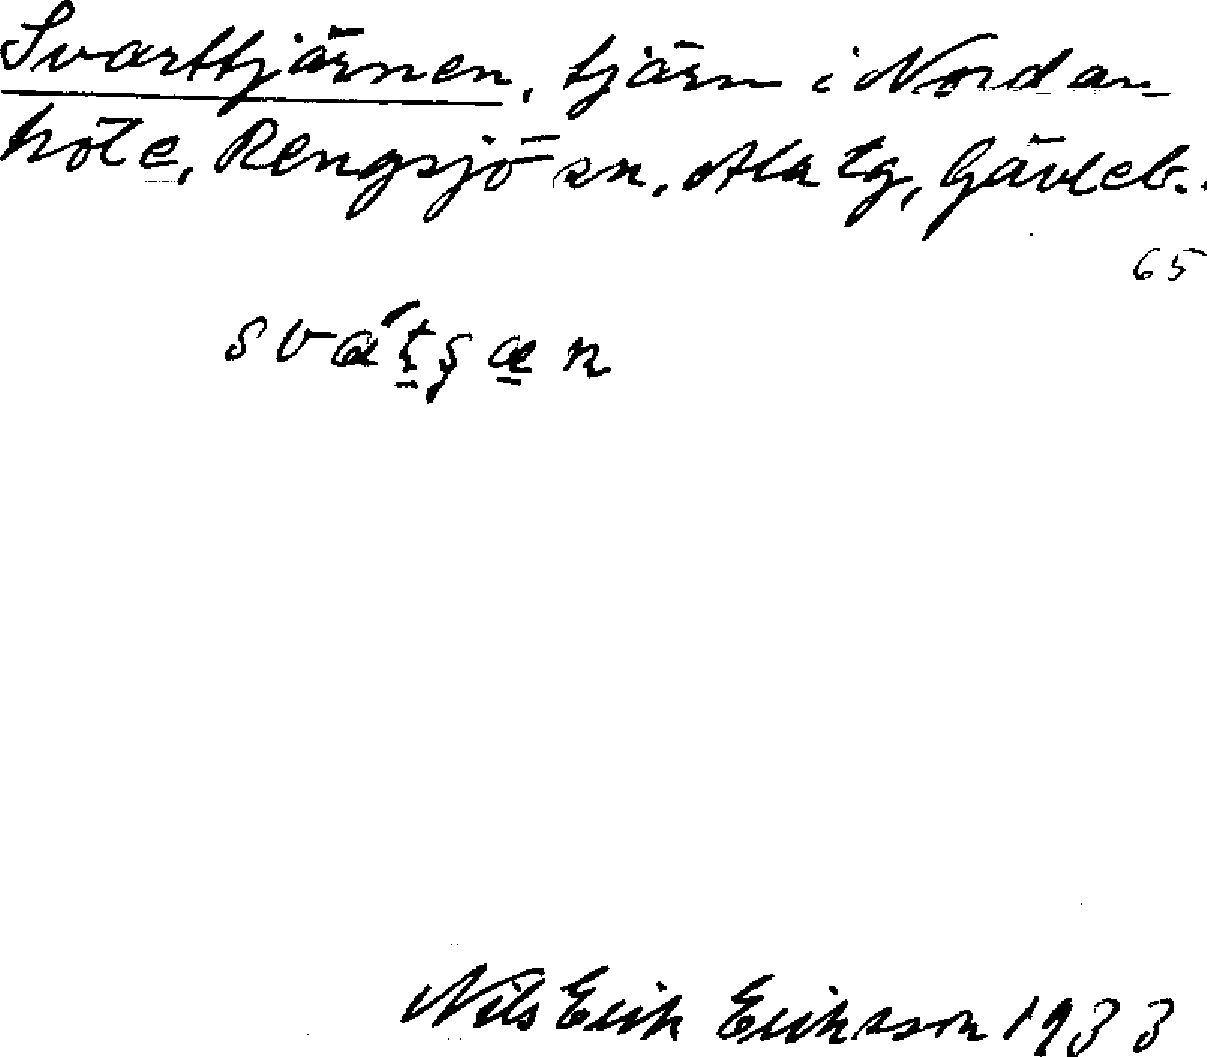 Svarttjärnen, tjärn i Nordan-
höle, Rengsjö sn, Ala tg, Gävleb.
65
Nils Erik Eriksson 1933